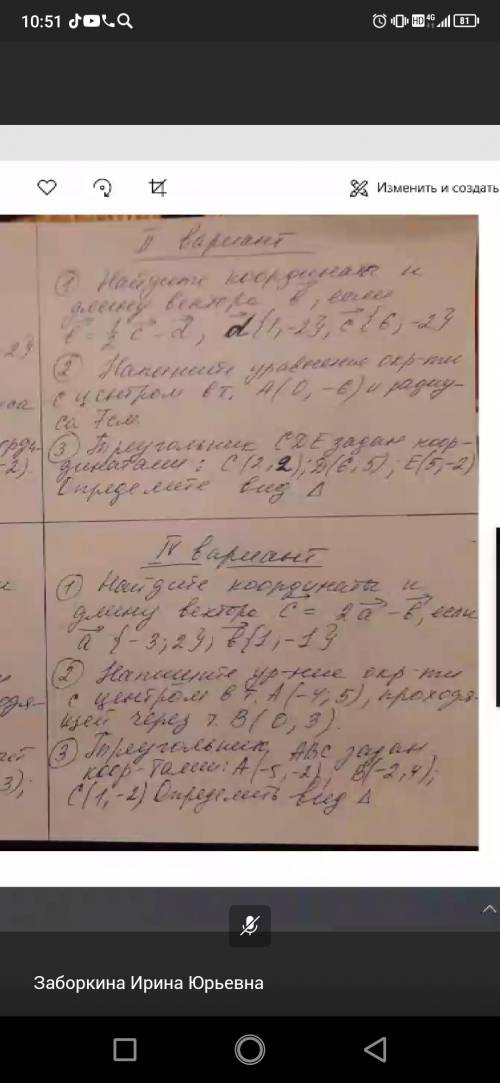 10:51
HD 4G 81
Изменить и создать
II вариант
① Найдите координаты и
длину вектора b, если
b = 1/2 c - d, d{1,-2}, c{6,-2}
② Напишите уравнение окр-ти
с центром в т. A(0, -6) и радиу-
са 7см
③ Треугольник CDE задан коор-
динатами: C(2,2); D(6,5); E(5,-2)
Определите вид Δ
2}
иса
рди-
-2).
IV вариант
① Найдите координаты и
длину вектора c = 2a - b, если
a {-3; 2}; b{1,-1}
② Напишите ур-ние окр-ти
с центром в т. A(-4, 5), проходя-
щей через т. B(0, 3).
③ Треугольник ABC задан
коор-тами: A(-5,-2), B(-2,4);
C(1,-2) Определить вид Δ
3);
Заборкина Ирина Юрьевна